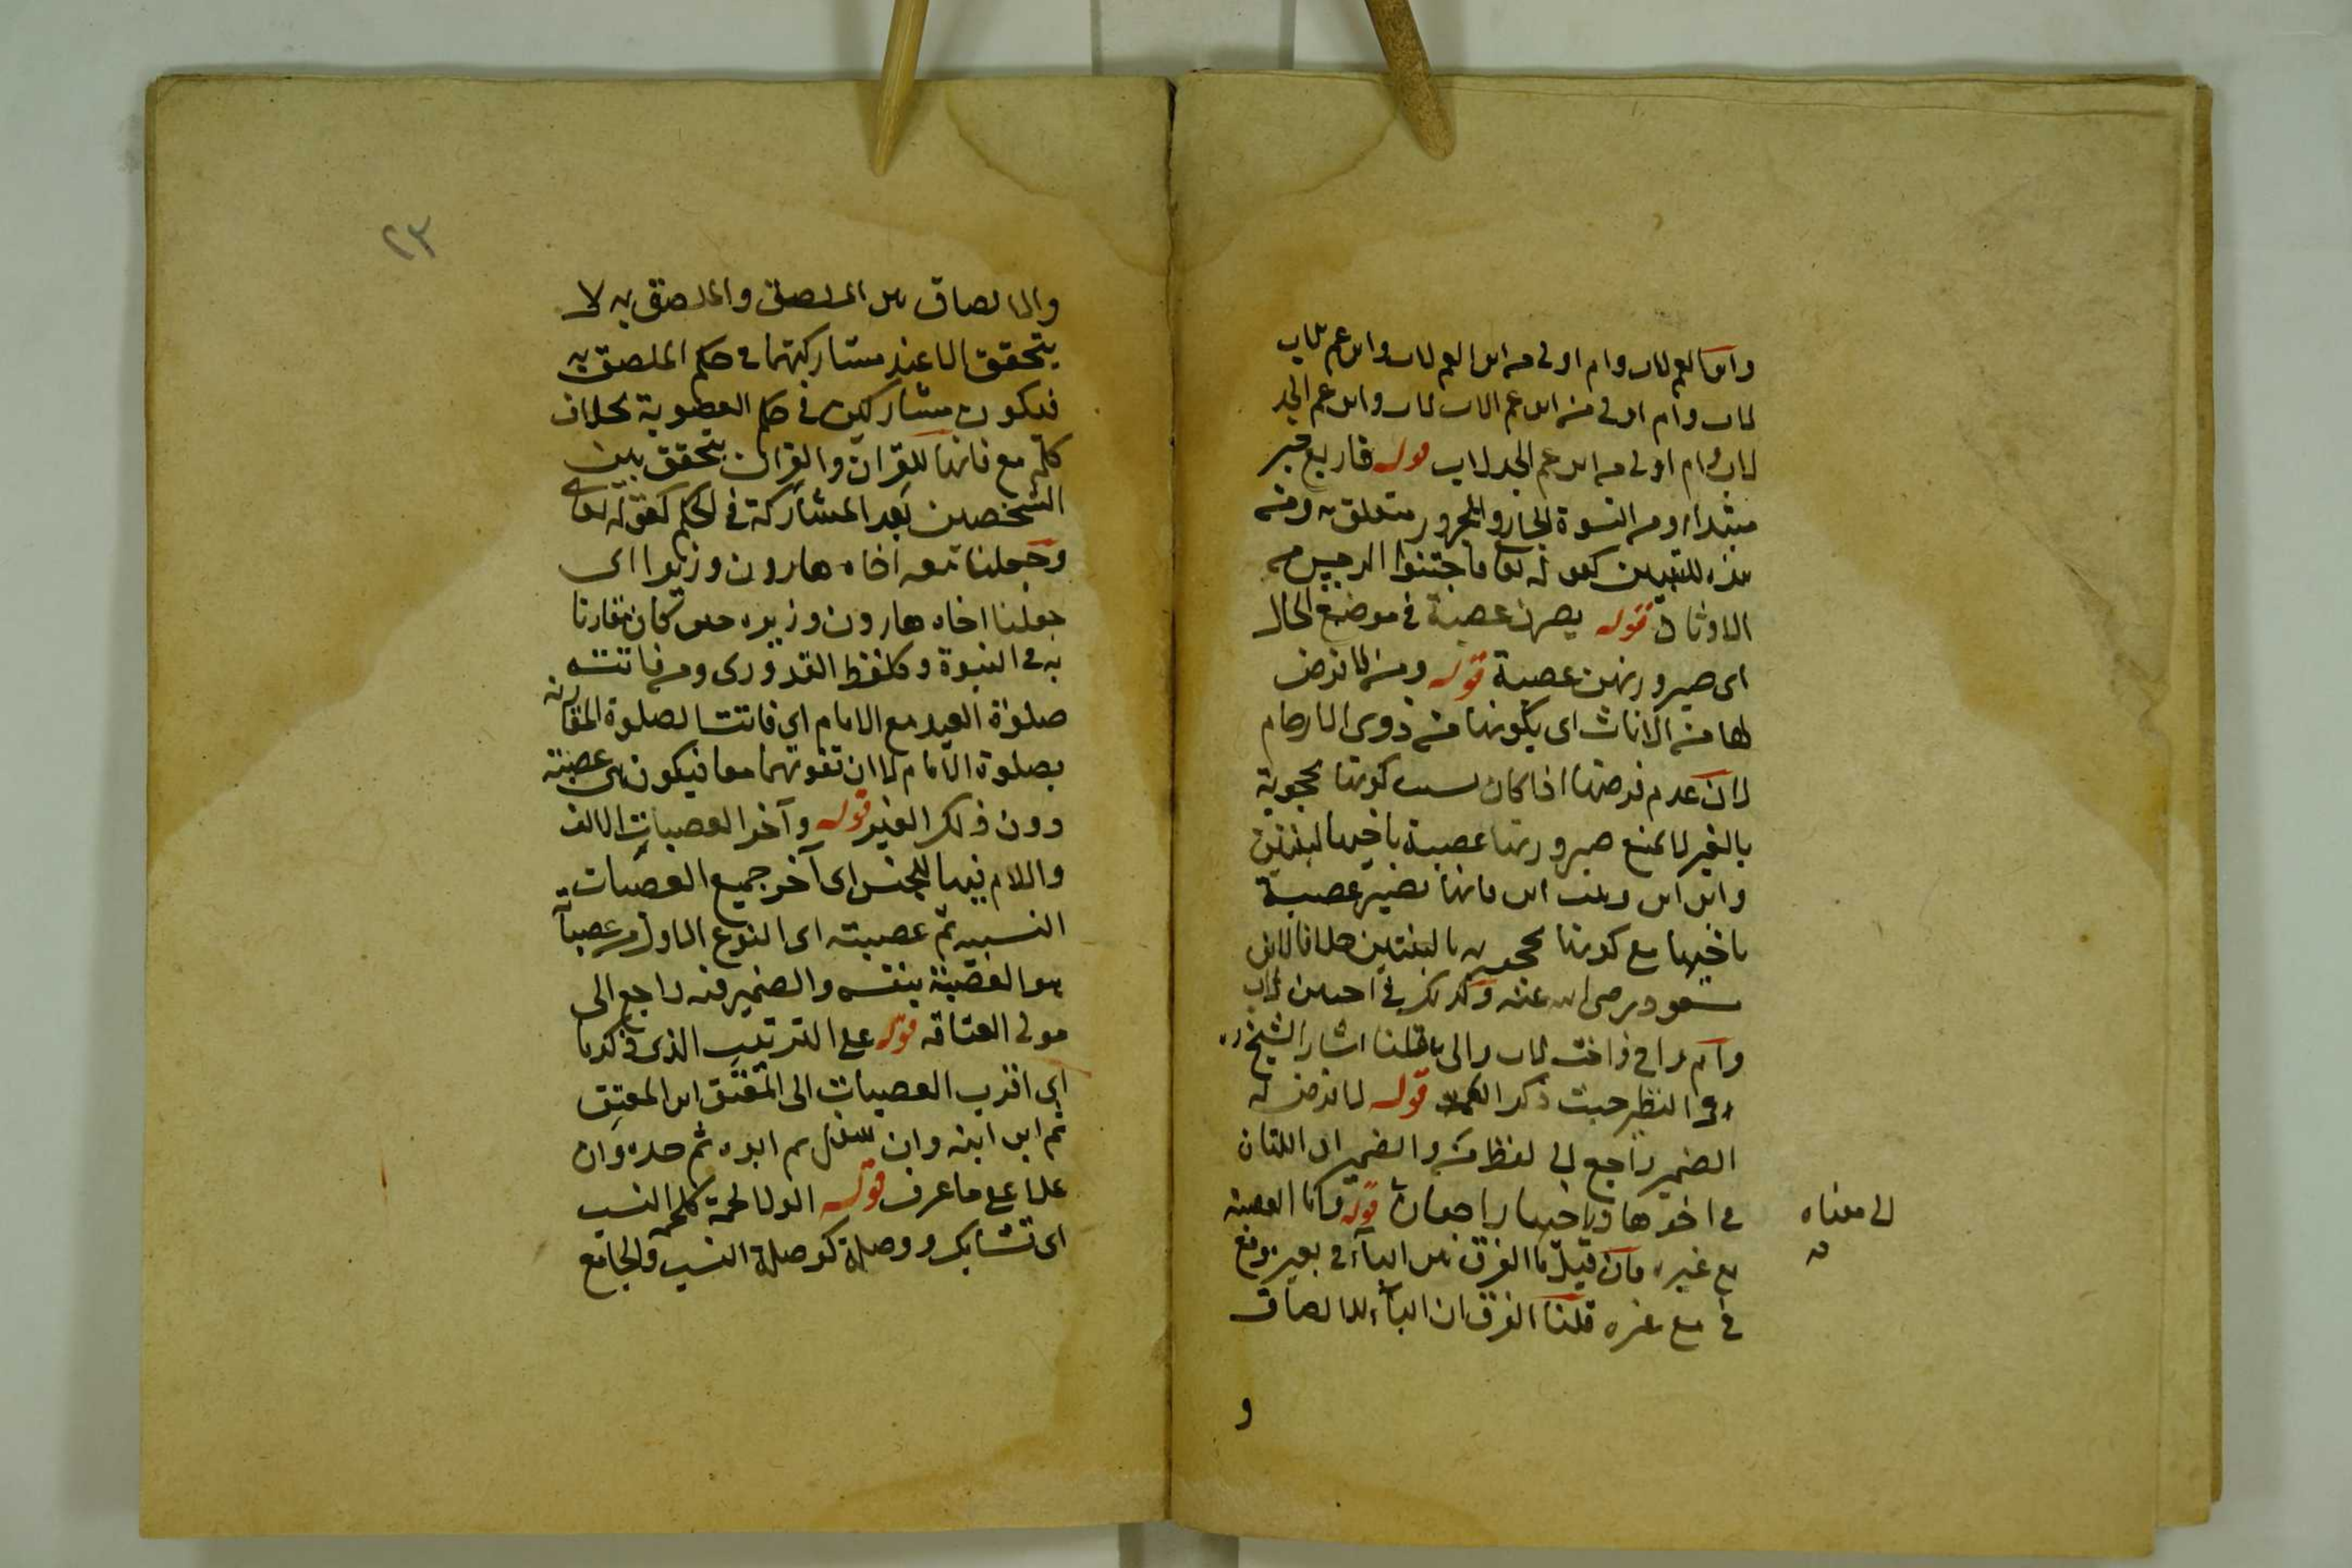 وابن العم لاب وام اولى من ابن العم لاب وابن عم الاب
لاب وام اولى من ابن عم الاب لاب وابن عم الجد
لاب وام اولى من ابن عم الجد لاب قوله فاربع خبر
مبتداء ومن النسوة الجار والمجرور متعلق به ومن
هذه للتبيين كقوله تعا فاجتنبوا الرجس من
الاوثان قوله يصرن عصبة في موضع الحال
اى صيرورتهن عصبة قوله ومن لا فرض
لها من الاناث اى بكونها من ذوى الارحام
لان عدم فرضها اذا كان بسبب كونها محجوبة
بالغير لا يمنع صيرورتها عصبة باخيها كبنتين
وابن ابن وبنت ابن فانها تصير عصبة
باخيها مع كونها محجوبة بالبنتين خلافا لابن
مسعود رضى الله عنه وكذلك في اختين لاب
وام واخ واخت لاب والى ما قلنا اشار الشيخ ره
في النظر حيث ذكر قوله لا فرض له
الضمير راجع الى لفظ من والضميران اللتان
في اخوها وباخيها راجعان قوله واما العصبة
الى معناه
مع غيره فان قيل ما الفرق بين الباء في بغيره ومع
في مع غيره قلنا الفرق ان الباء للالصاق
و
٢٣
والالصاق بين الملصق والملصق به لا
يتحقق الا عند مشاركتهما في حكم الملصق به
فيكون مشاركين في حكم العصوبة بخلاف
كلمة مع فانها للقران والقران يتحقق بين
الشخصين بغير المشاركة في الحكم كقوله تعا
وجعلنا معه اخاه هارون وزيرا اى
جعلنا اخاه هارون وزيره حين كان مقارنا
به في النبوة وكلفظ القدورى ومن فاتته
صلوة العيد مع الامام اى فاتته الصلوة المقارنة
بصلوة الامام لا ان تفوتهما معا فيكون هى عصبة
دون ذلك الغير قوله وآخر العصبات الالف
واللام فيها للجنس اى آخر جميع العصبات
النسبيه ثم عصبته اى النوع الاول من عصبات
هو العصبة بنفسه والضمير فيه راجع الى
مولى العتاقه قوله على الترتيب الذى ذكرنا
اى اقرب العصبات الى المعتق ابن المعتق
ثم ابن ابنه وان سفل ثم ابوه ثم جده وان
علا على ما عرف قوله الولا لحمة كلحمة النسب
اى تشابك ووصلة كوصلة النسب والجامع